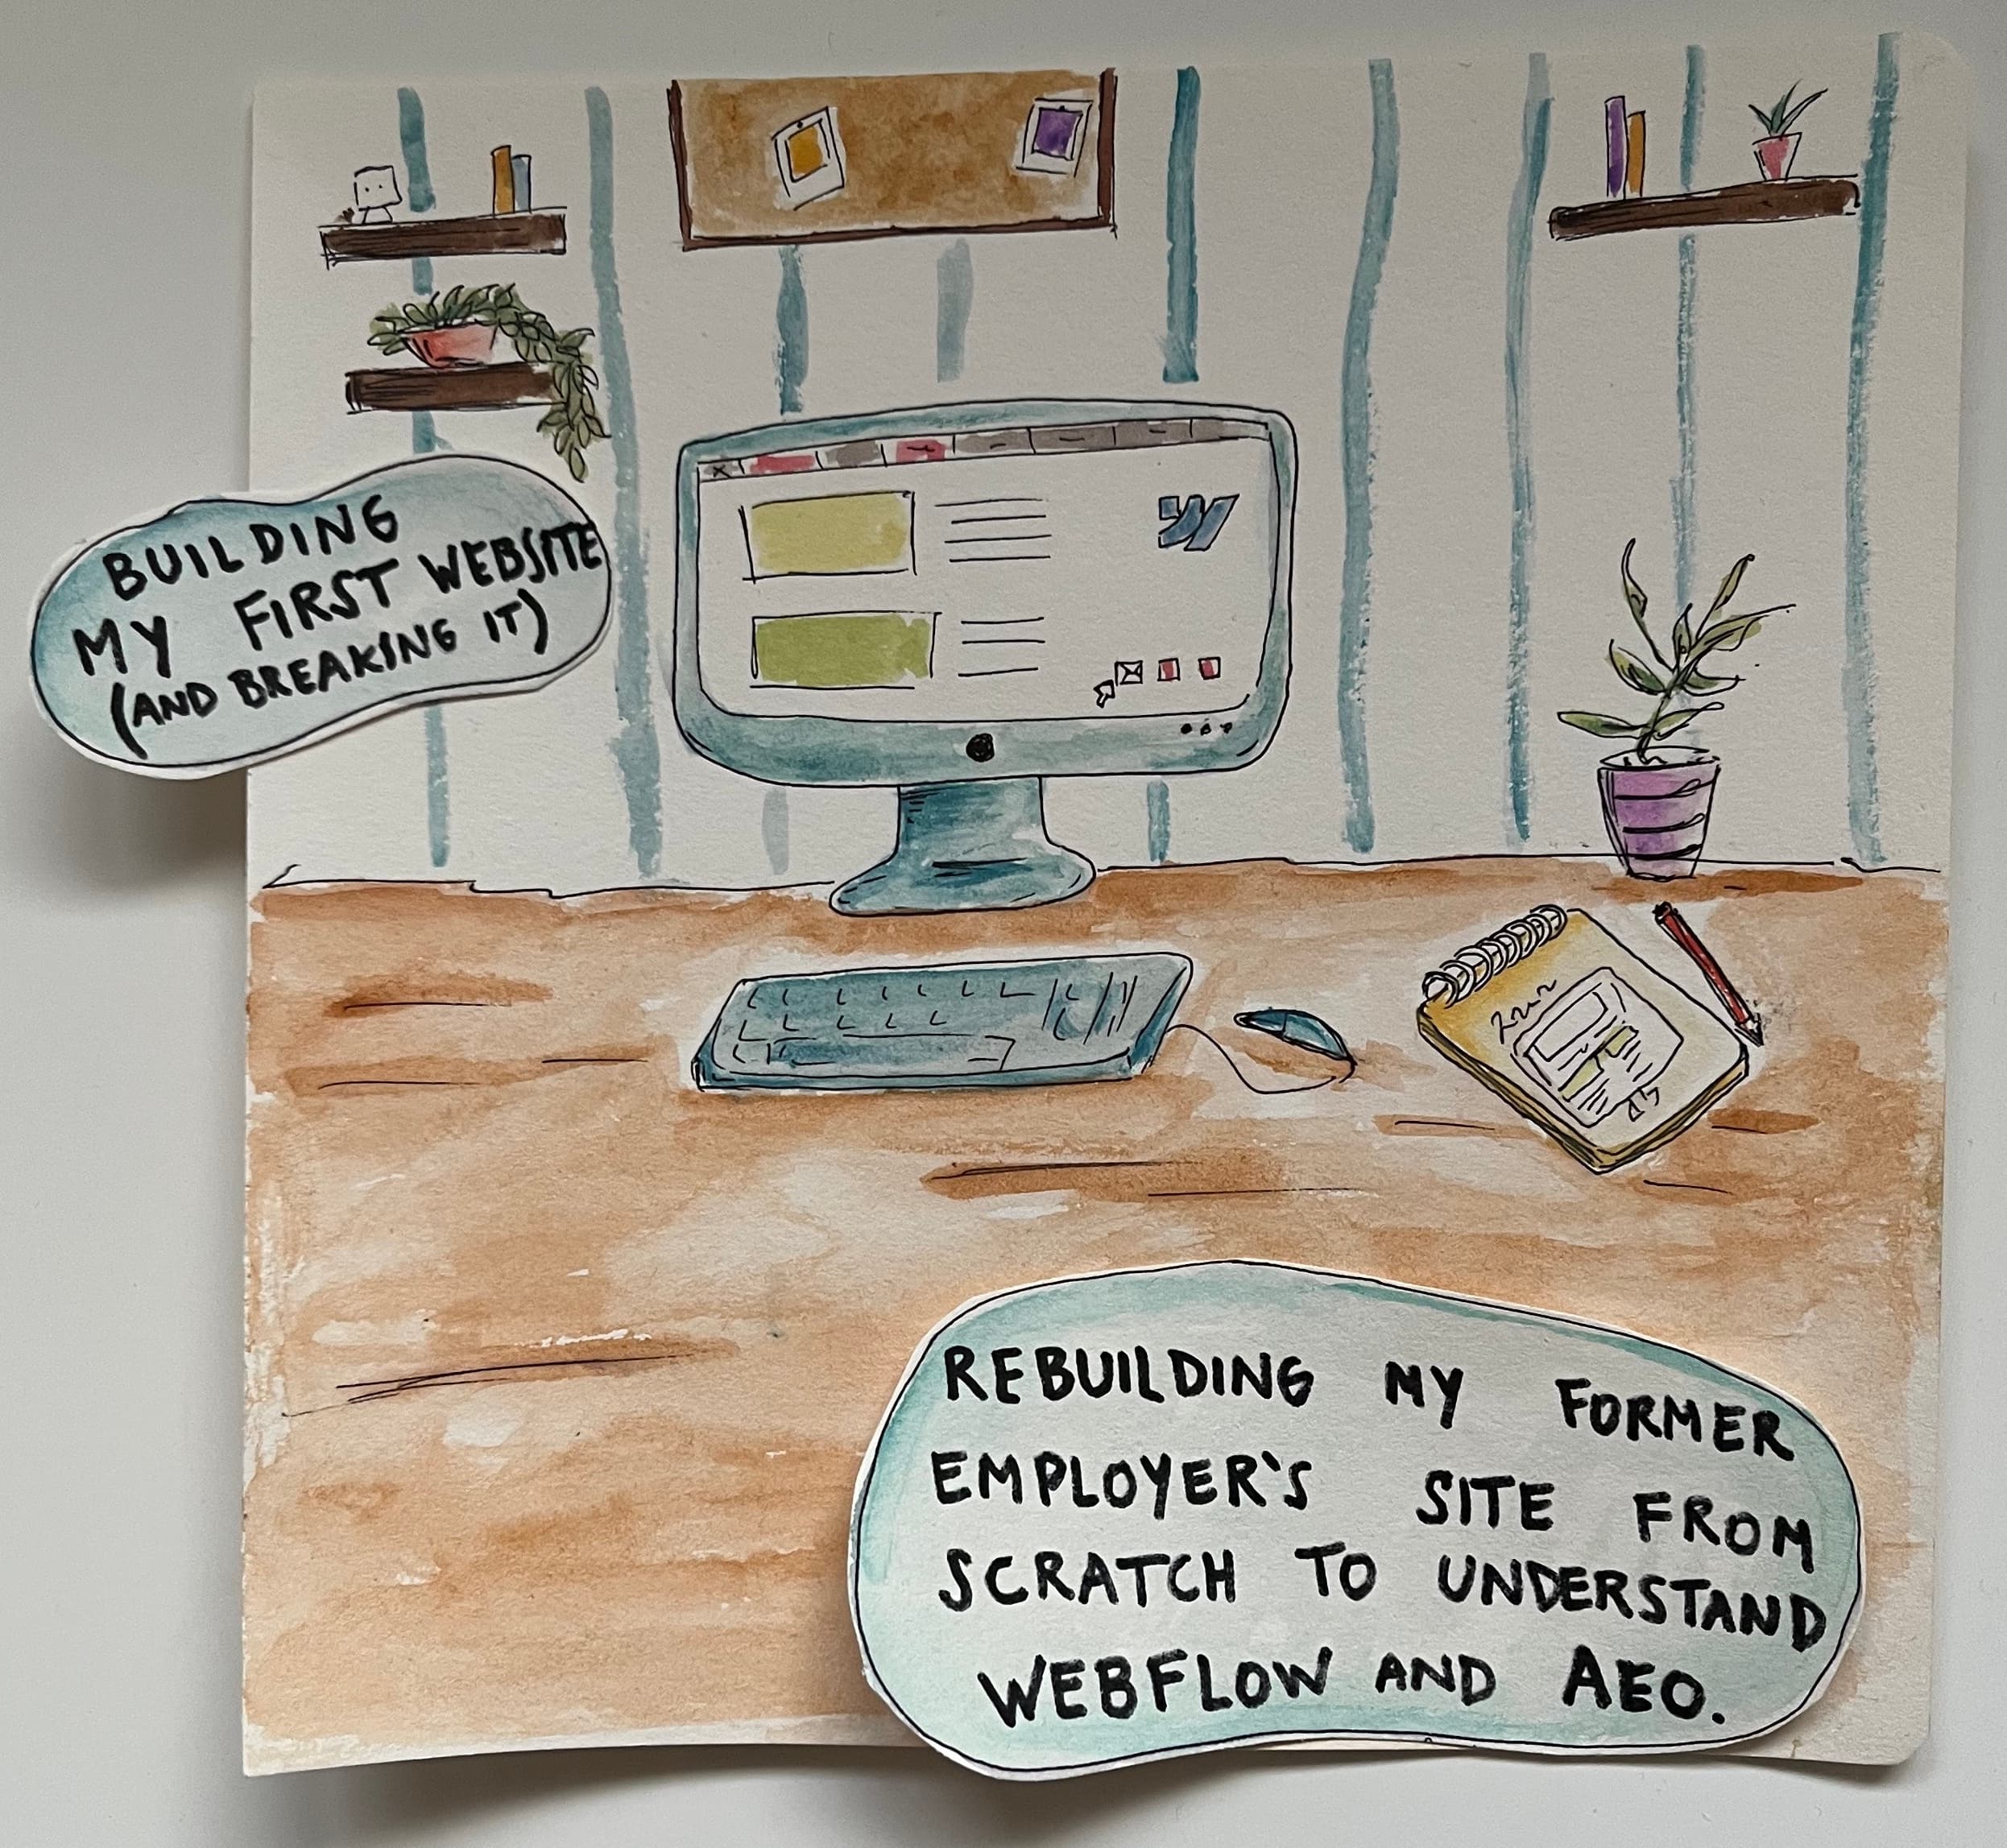 BUILDING
MY FIRST WEBSITE
(AND BREAKING IT)
REBUILDING MY FORMER
EMPLOYER'S SITE FROM
SCRATCH TO UNDERSTAND
WEBFLOW AND AEO.